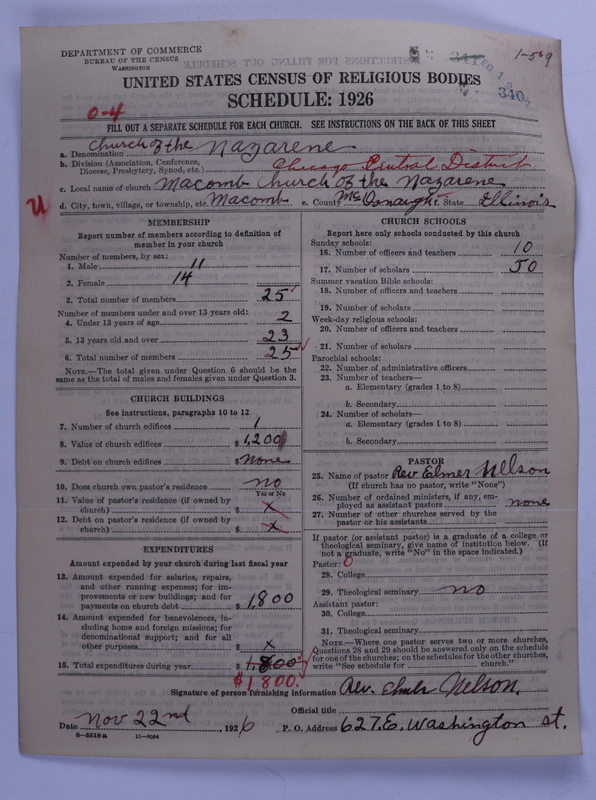 DEPARTMENT OF COMMERCE
BUREAU OF THE CENSUS
WASHINGTON
1-549
340
UNITED STATES CENSUS OF RELIGIOUS BODIES
SCHEDULE: 1926
0-4
FILL OUT A SEPARATE SCHEDULE FOR EACH CHURCH. SEE INSTRUCTIONS ON THE BACK OF THIS SHEET
a. Denomination Church of the Nazarene
b. Division (Association, Conference, Diocese, Presbytery, Synod, etc.) Chicago Central District
c. Local name of church Macomb Church of the Nazarene
U d. City, town, village, or township, etc. Macomb e. County McDonaugh f. State Illinois
MEMBERSHIP
Report number of members according to definition of
member in your church
Number of members, by sex:
1. Male 11
2. Female 14
3. Total number of members 25
Number of members under and over 13 years old:
4. Under 13 years of age 2
5. 13 years old and over 23
6. Total number of members 25
NOTE.—The total given under Question 6 should be the
same as the total of males and females given under Question 3.
CHURCH BUILDINGS
See instructions, paragraphs 10 to 12
7. Number of church edifices 1
8. Value of church edifices $1,200
9. Debt on church edifices $ none
10. Does church own pastor's residence no
Yes or No
11. Value of pastor's residence (if owned by
church) $ x
12. Debt on pastor's residence (if owned by
church) $ x
EXPENDITURES
Amount expended by your church during last fiscal year
13. Amount expended for salaries, repairs,
and other running expenses; for im-
provements or new buildings; and for
payments on church debt $ 1,800
14. Amount expended for benevolences, in-
cluding home and foreign missions; for
denominational support; and for all
other purposes $ x
15. Total expenditures during year $ 1,800
$1800.
CHURCH SCHOOLS
Report here only schools conducted by this church
Sunday schools:
16. Number of officers and teachers 10
17. Number of scholars 50
Summer vacation Bible schools:
18. Number of officers and teachers
19. Number of scholars
Week-day religious schools:
20. Number of officers and teachers
21. Number of scholars
Parochial schools:
22. Number of administrative officers
23. Number of teachers—
a. Elementary (grades 1 to 8)
b. Secondary
24. Number of scholars—
a. Elementary (grades 1 to 8)
b. Secondary
PASTOR
25. Name of pastor Rev. Elmer Nelson
(If church has no pastor, write "None")
26. Number of ordained ministers, if any, em-
ployed as assistant pastors none
27. Number of other churches served by the
pastor or his assistants
If pastor (or assistant pastor) is a graduate of a college or
theological seminary, give name of institution below. (If
not a graduate, write "No" in the space indicated.)
Pastor: 0
28. College
29. Theological seminary no
Assistant pastor:
30. College
31. Theological seminary
NOTE.—Where one pastor serves two or more churches,
Questions 28 and 29 should be answered only on the schedule
for one of the churches; on the schedules for the other churches,
write "See schedule for church."
Signature of person furnishing information Rev. Elmer Nelson.
Official title
Date Nov 22nd, 1926 P. O. Address 627. E. Washington st.
8—5518 a 11—9024